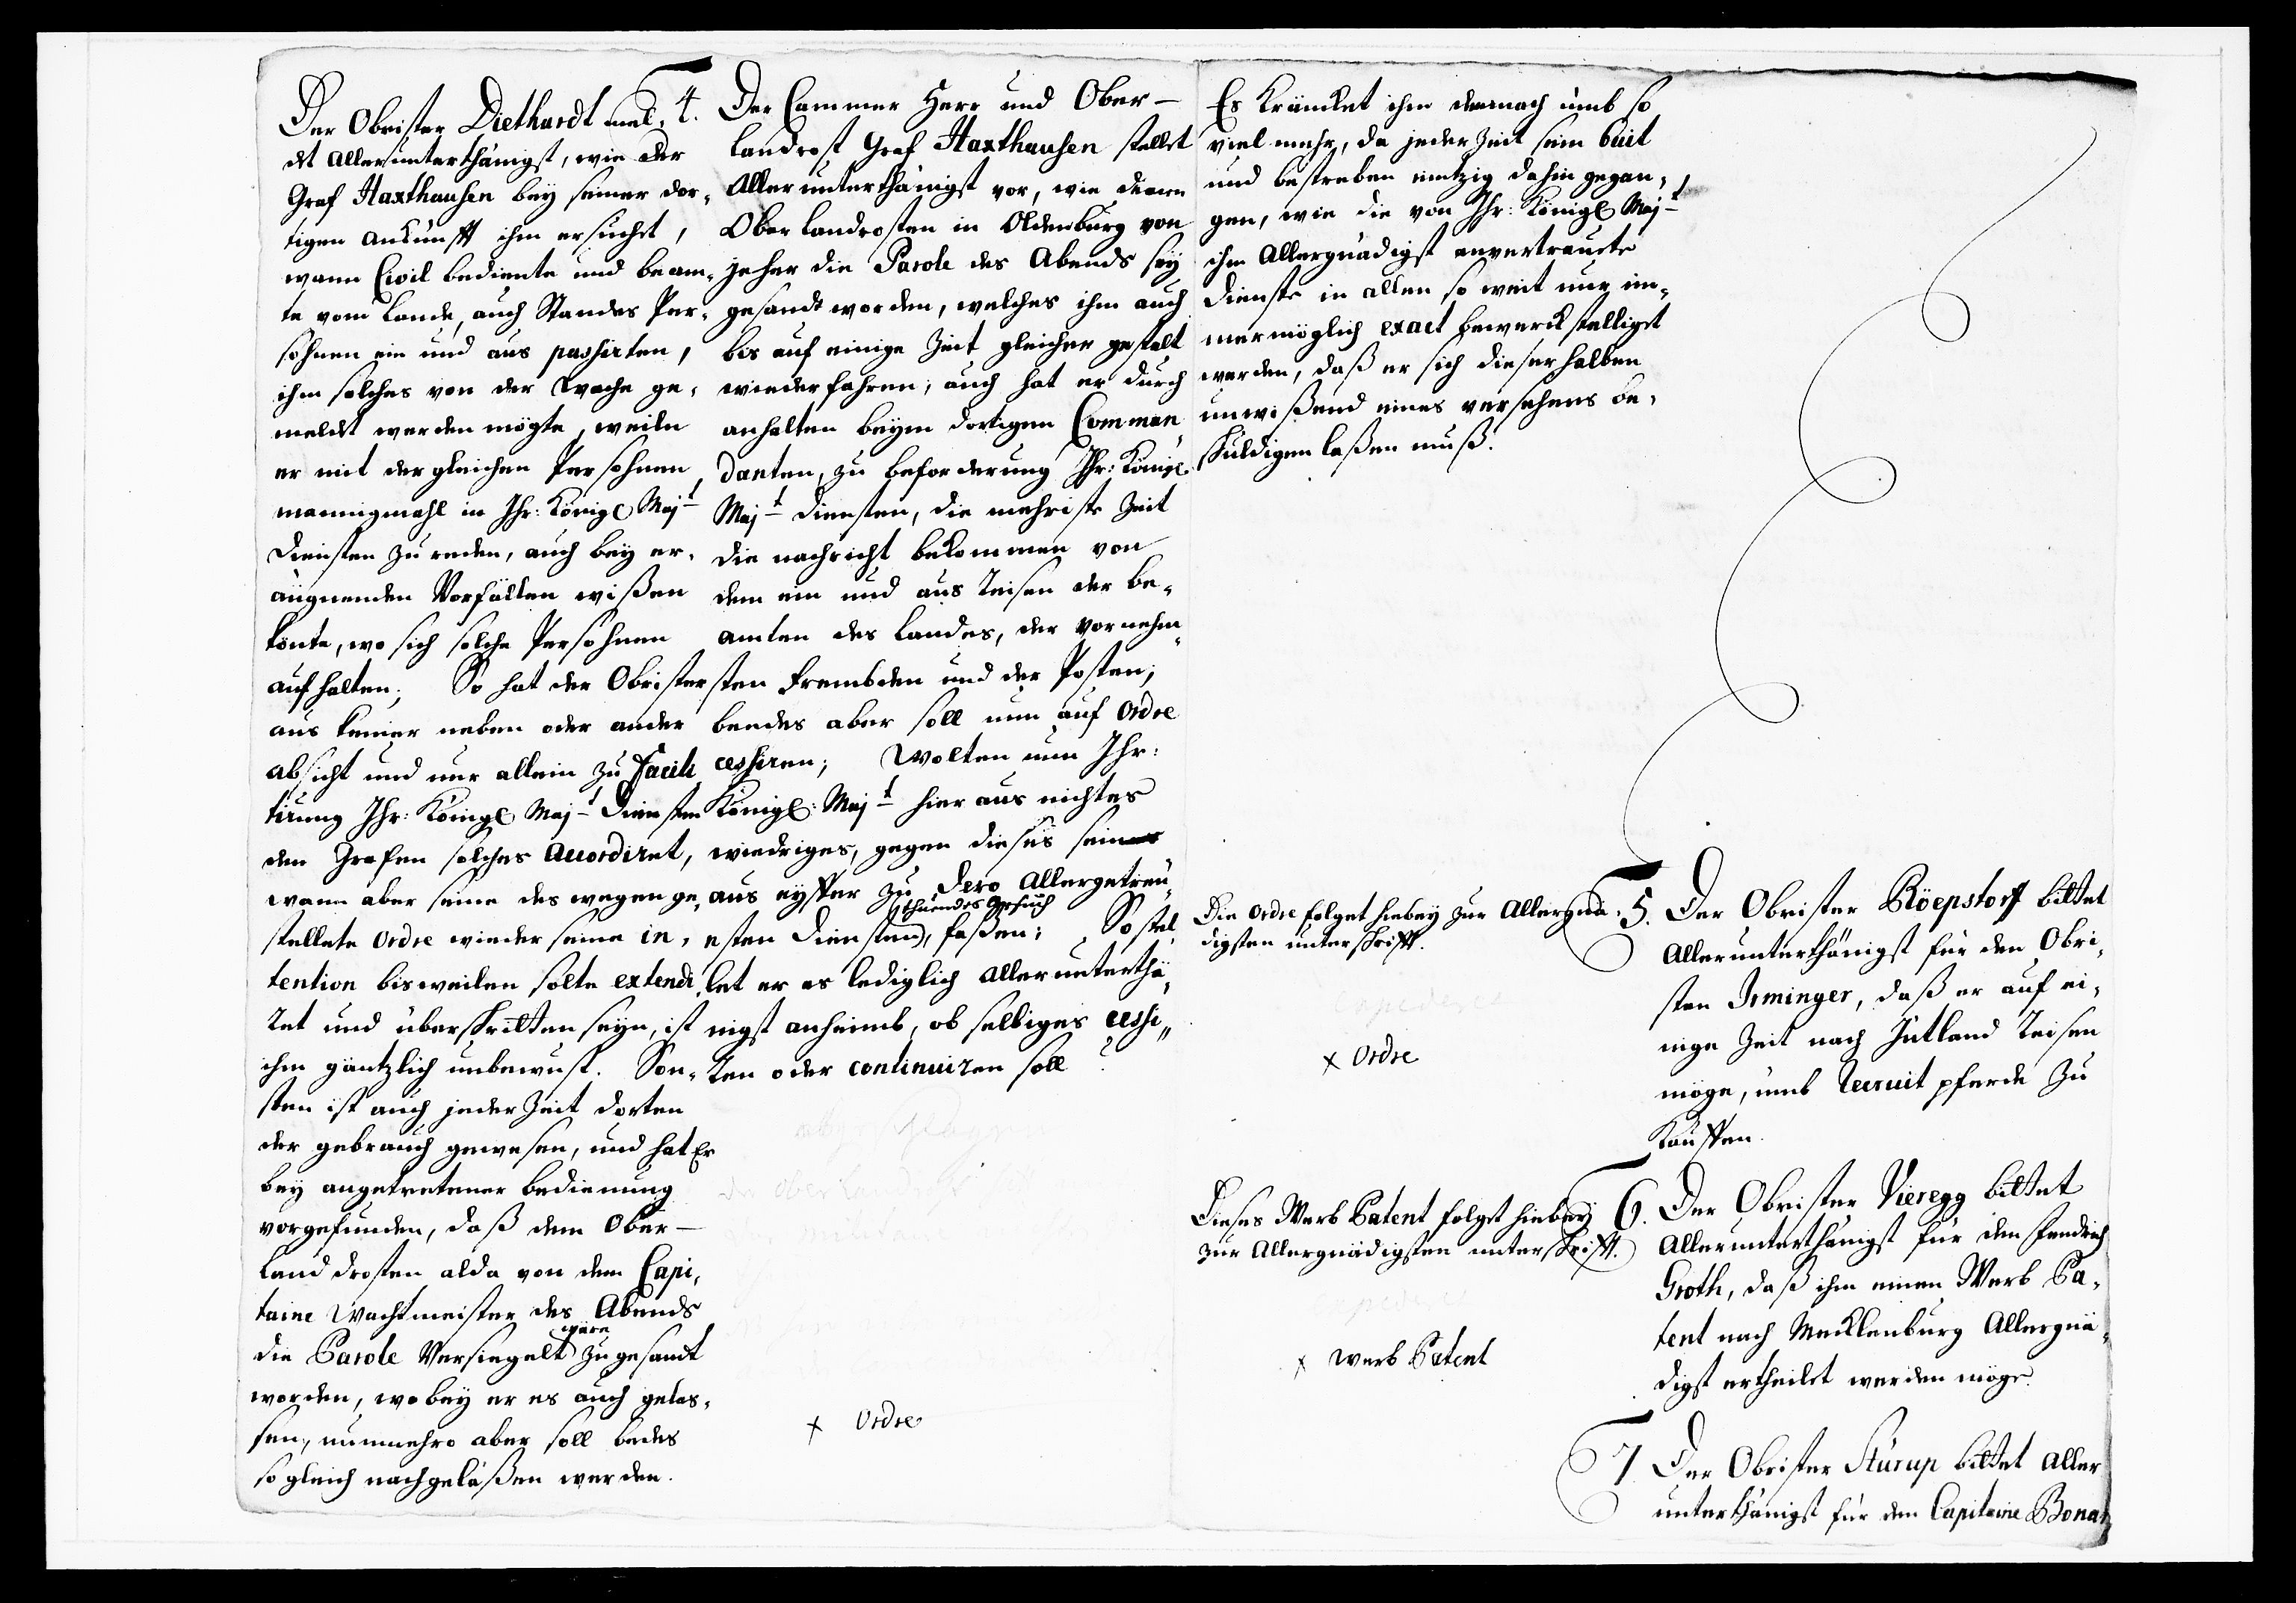 Der Obrister Diethardt mel¬
det Allerunterthänigst, wie der
Graf Haxthausen bey seiner dor¬
tigen ankunfft ihm ersucht,
wann Civil bediente und beam¬
te vom Lande, auch Standes Per¬
sohnen ein und aus passirten,
ihm solches von der Wache ge¬
meldt werden mögte, weiln
er mit dergleichen Persohnen
mannigmahl in Ihr: Königl Majt
diensten zu reden, auch bey er¬
äügnenden Vorfällen wißen
könte, wo sich solche Persohnen
aufhalten; So hat der Obrister
aus keiner neben oder ander
absicht und nur allein zu Facili
tirung Ihr: Königl Majt diensten
den Grafen solches accordiret,
wann aber seine deswegen ge¬
stellete ordre wieder seine in¬
tention bisweilen solte extendi
ret und überschritten seyn, ist
ihm gäntzlich unbewust. Son¬
sten ist auch jeder Zeit dorten
der gebrauch gewesen, und hat Er
bey angetretener bedienung
vorgefunden, daß dem Ober-
Land drosten alda von dem Capi¬
taine Wachtmeister des Abends
die Parole Versiegelt wäre zugesandt
worden, wobey er es auch gelas¬
sen, nunmehro aber soll bedes
sogleich nachgelaßen werden.
4. Der Cammer Herr und Ober-
Landrost Graf Haxthausen stellet
Allerunterthänigst vor, wie denen
Oberlandrosten in Oldenburg von
jeher die Parole des Abends sey
gesandt worden, welches ihm auch
bis auf einige Zeit gleicher gestalt
wiederfahren; auch hat er durch
anhalten beym dortigen Comman
danten, zu beforderung Ihr: Königl
Majt diensten, die mehriste Zeit
die nachricht bekommen von
dem ein und aus reisen der be¬
amten des Landes, der vornehm¬
sten Frembden und der Posten;
beedes aber soll nun auf ordre
cessiren; Wolten nun Ihr:
Königl: Majt hieraus nichtes
wiedriges, gegen dieses sein
aus eyffer zu Dero Allergetreu¬
esten diensten, thuendes Gesuch faßen; So stel
let er es lediglich allerunterthä¬
nigst anheimb, ob selbiges cessi¬
ren oder continuiren soll?
x Ordre
Es kräncket ihm demnach umb so
viel mehr, da jeder Zeit sein buit
und bestreben eintzig dahin gegan¬
gen, wie die von Ihr: Königl Majt
ihm Allergnädigst anvertraute
dienste in allen so weit nur im¬
mer möglich exact bewerckstelliget
werden, daß er sich dieserhalben
unwißend eines versehens be¬
schuldigen laßen muß.
Die ordre folget hiebey zur Allergnä¬
digsten unterschrifft.
x Ordre
Dieses Werb Patent folget hiebey
zur Allergnädigsten unterschrifft.
x Werb Patent
5. Der Obrister Röepstorff bittet
Allerunterthänigst für den Obri¬
sten Irminger, daß er auf ei¬
nige Zeit nach Jütland reisen
möge, umb recruit pferde zu
Kauffen.
6. Der Obrister Vieregg bittet
Allerunterthänigst für den Fendrich
Groth, daß ihm einen Werb Pa¬
tent nach Mecklenburg Allergnä¬
digst ertheilet werden möge.
7. Der Obrister Stürup bittet Aller
unterthänigst für den Capitaine Bonat